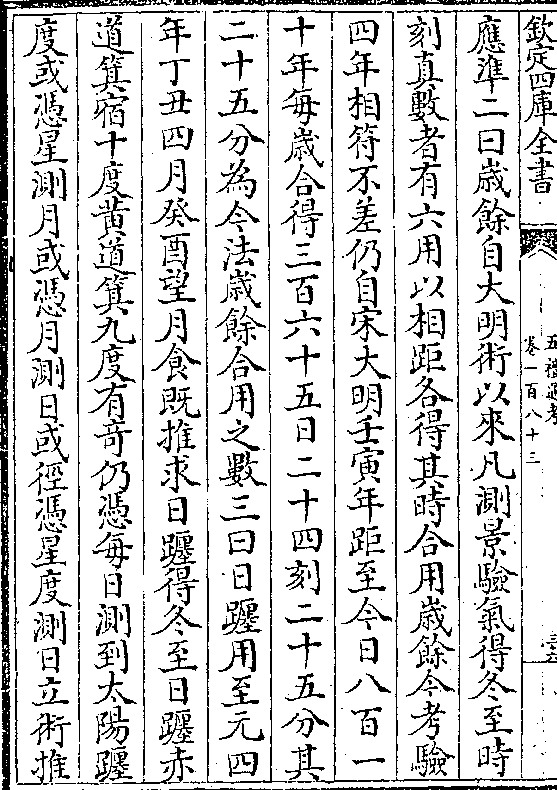 欽定四庫全書
五禮通考
卷一百八十三
應準二曰歲餘自大明術以來凡測景驗氣得冬至時
刻真數者有六用以相距各得其時合用歲餘今考驗
四年相符不差仍自宋大明壬寅年距至今日八百一
十年每歲合得三百六十五日二十四刻二十五分其
二十五分為今法歲餘合用之數三曰日躔用至元四
年丁丑四月癸酉望月食既推求日躔得冬至日躔赤
道箕宿十度黄道箕九度有奇仍憑每日測到太陽躔
度或憑星測月或憑月測日或徑憑星度測日立術推